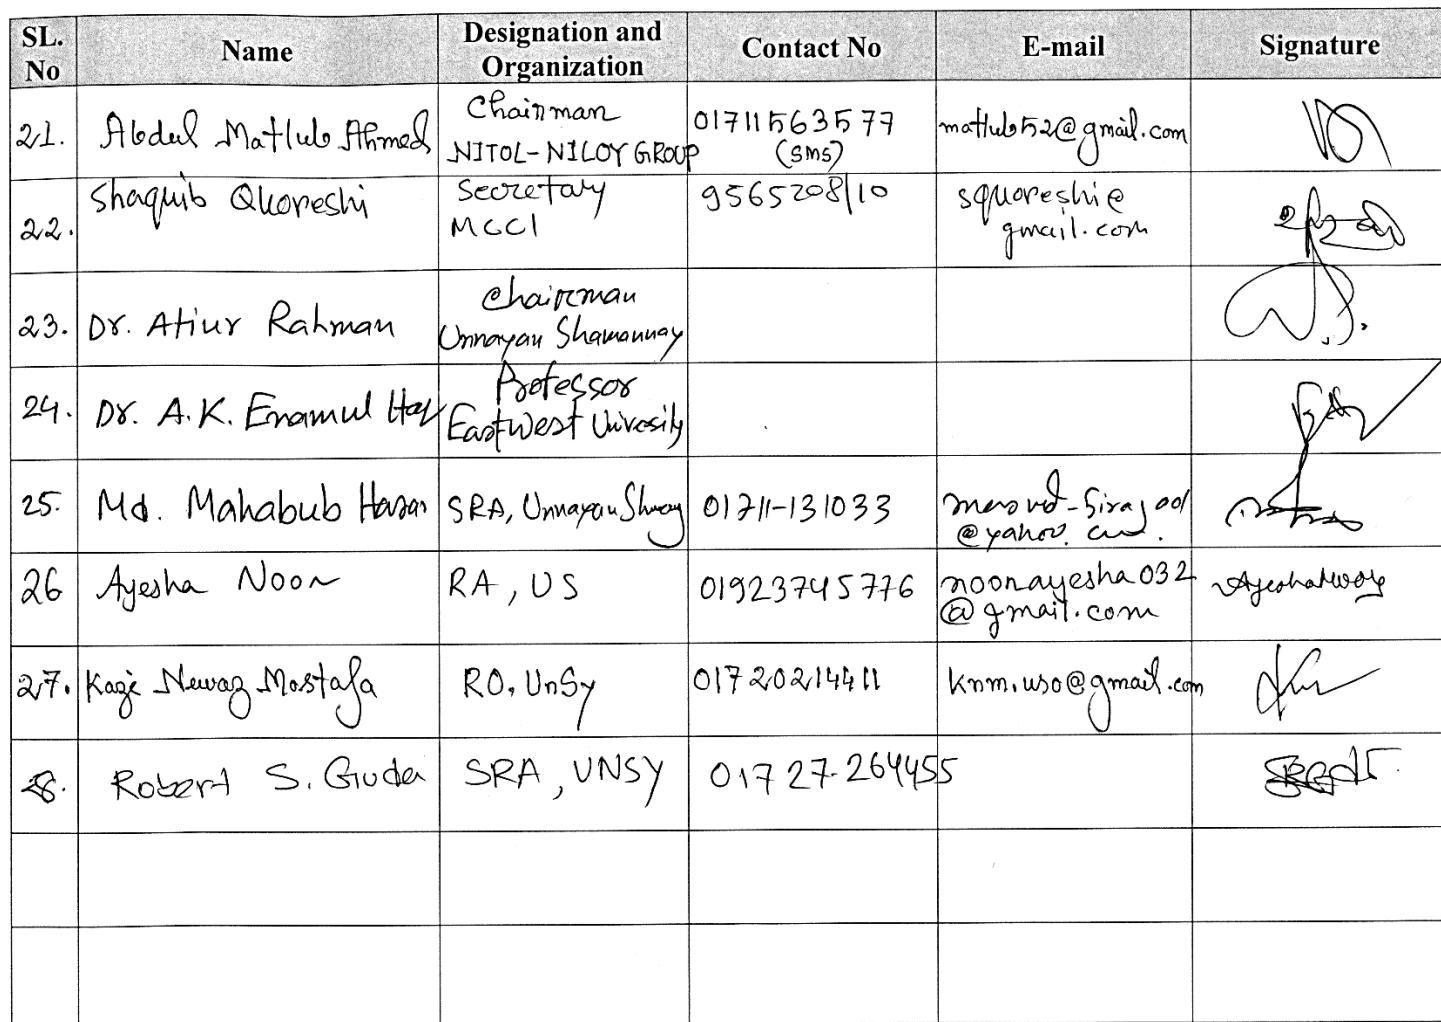 SL. No | Name | Designation and Organization | Contact No | E-mail | Signature
21. | Abdul Matlub Ahmed | Chairman NITOL-NILOY GROUP | 01711563577 (SMS) | matlub52@gmail.com
22. | Shaquib Quoreshi | Secretary MCCI | 9565208/10 | squoreshi@gmail.com
23. | Dr. Atiur Rahman | Chairman Unnayan Shamannay
24. | Dr. A.K. Enamul | Professor East West Univesity
25. | Md. Mahabub Hasan | SRA, Unnayan | 01711-131033 | @yahoo.
26 | Ayesha Noon | RA, US | 01923745776 | noonayesha032@gmail.com
27. | Kazi Newaz Mostafa | RO, UnSy | 01720214411 | knm.uso@gmail.com
28. | Robert S. Guda | SRA, UNSY | 01727-264455